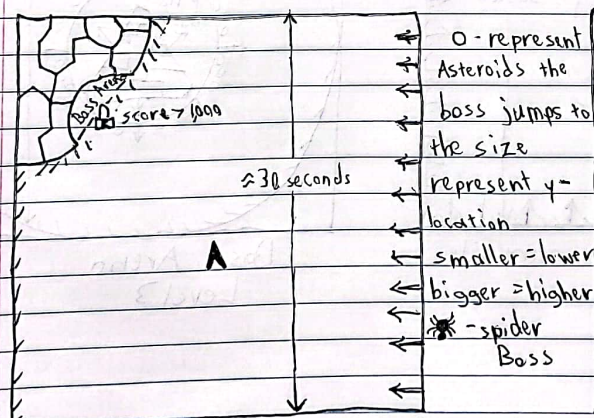 Boss Arena
score > 1,000
≈ 30 seconds
A
O - represent
Asteroids the
boss jumps to
the size
represent y-
location
smaller = lower
bigger = higher
- spider
Boss